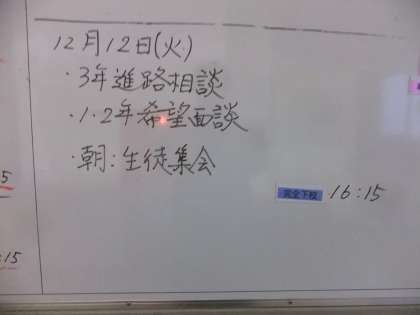 12月12日(火)
・3年進路相談
・1・2年希望面談
・朝:生徒集会
完全下校 16:15
5
:15